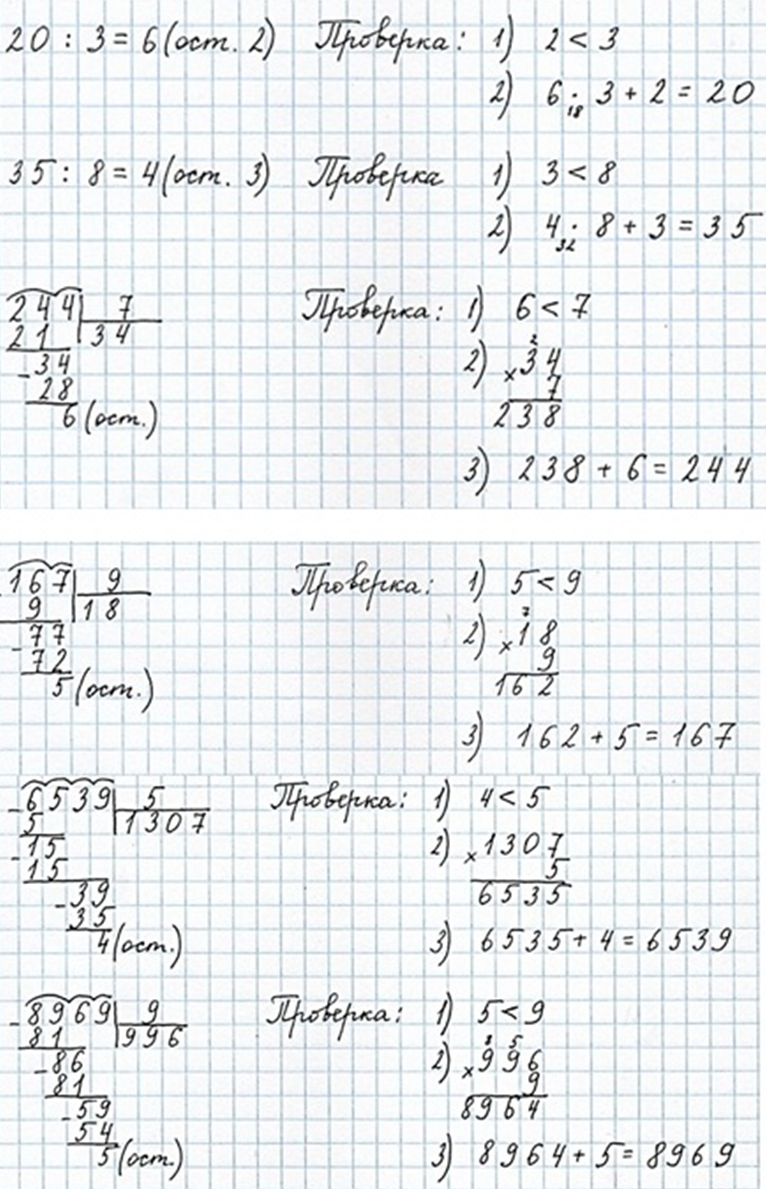 20 : 3 = 6 (ост. 2) Проверка: 1) 2 < 3
2) 6 · 3 + 2 = 20
18
35 : 8 = 4 (ост. 3) Проверка 1) 3 < 8
2) 4 · 8 + 3 = 35
32
244 | 7 Проверка: 1) 6 < 7
21 | 34
2
- 34 2) × 34
28 7
6 (ост.) 238
3) 238 + 6 = 244
167 | 9 Проверка: 1) 5 < 9
9 | 18
7
- 77 2) × 18
72 9
5 (ост.) 162
3) 162 + 5 = 167
- 6539 | 5 Проверка: 1) 4 < 5
5 | 1307
- 15 2) × 1307
15 5
- 39 6535
35
4 (ост.) 3) 6535 + 4 = 6539
- 8969 | 9 Проверка: 1) 5 < 9
81 | 996
8 5
- 86 2) × 996
81 9
- 59 8964
54
5 (ост.) 3) 8964 + 5 = 8969